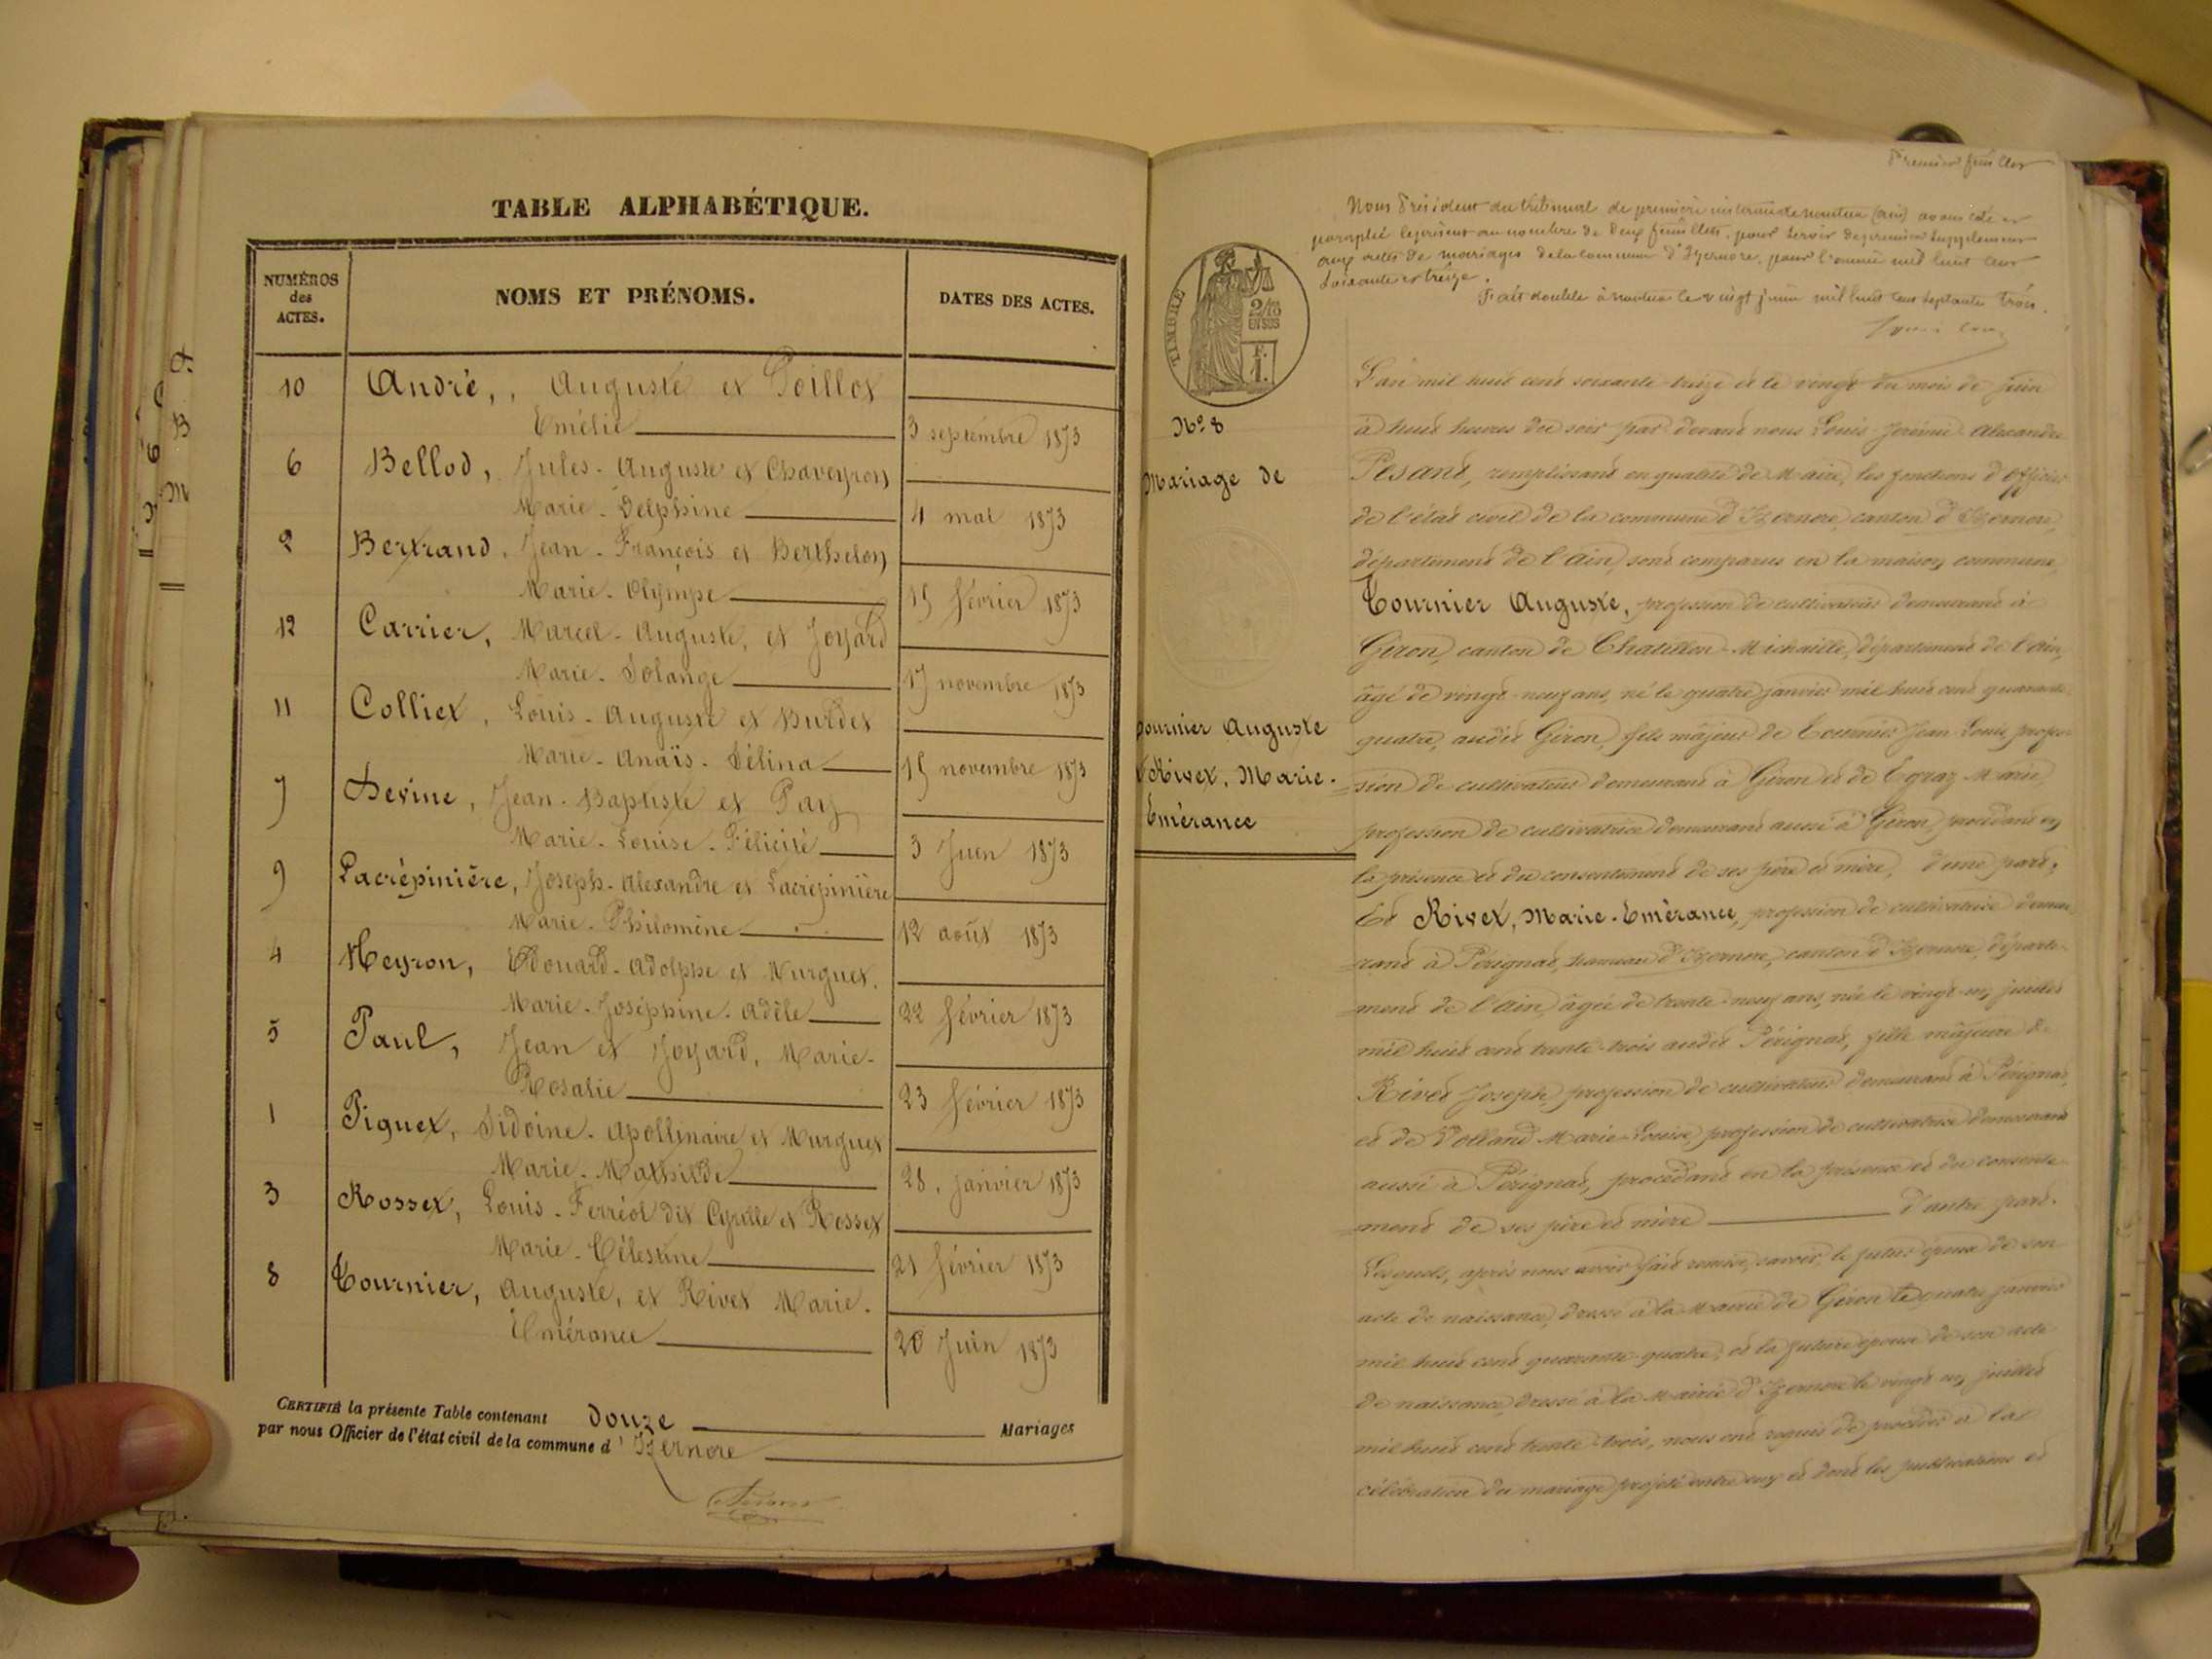 TABLE ALPHABÉTIQUE.
NUMÉROS des ACTES.
NOMS ET PRÉNOMS.
DATES DES ACTES.
10 André, Auguste et Poillot
Emélie 3 septembre 1873
6 Bellod, Jules-Auguste et Chaveyron
Marie-Delphine 4 mai 1873
2 Bertrand, Jean-François et Berthelon
Marie-Olympe 15 février 1873
12 Carrier, Marcel-Auguste, et Joyard
Marie-Solange 17 novembre 1873
11 Colliet, Louis-Auguste et Burdet
Marie-Anaïs-Célina 15 novembre 1873
7 Devine, Jean-Baptiste et Pay
Marie-Louise-Félicité 3 Juin 1873
9 Lacrépinière, Joseph-Alexandre et Lacrépinière
Marie-Philomène 12 août 1873
4 Neyron, Edouard-Adolphe et Murguet
Marie-Joséphine-Adèle 22 février 1873
5 Paul, Jean et Joyard, Marie-
Rosalie 23 février 1873
1 Piquet, Sidoine-Apollinaire et Murguet
Marie-Mathilde 28 janvier 1873
3 Rosset, Louis-Ferréol dit Cyrille et Rosset
Marie-Célestine 21 février 1873
8 Tournier, Auguste, et Rivet Marie-
Emérance 20 Juin 1873
CERTIFIÉ la présente Table contenant Douze Mariages
par nous Officier de l'état civil de la commune d'Izernore
Premier feuillet
Nous Président du tribunal de première instance de nantua (ain) avons coté et
paraphé le présent au nombre de deux feuillets, pour servir de premier supplément
aux actes de mariages de la commune d'Izernore, pour l'année mil huit cent
soixante et treize.
Fait double à nantua le vingt juin mil huit cent septante trois.
TIMBRE
2/10
EN SUS
F.
1.
No 8
Mariage de
Tournier Auguste
& Rivet, Marie-
Emérance
L'an mil huit cent soixante-treize et le vingt du mois de juin
à huit heures du soir par devant nous Louis Jérémie Alexandre
Pesant, remplissant en qualité de Maire, les fonctions d'Officier
de l'état civil de la commune d'Izernore, canton d'Izernore,
département de l'Ain, sont comparus en la maison commune,
Tournier Auguste, profession de cultivateur demeurant à
Giron, canton de Chatillon-Michaille, département de l'Ain,
âgé de vingt-neuf ans, né le quatre janvier mil huit cent quarante
quatre, audit Giron, fils majeur de Tournier Jean Louis, profes-
sion de cultivateur demeurant à Giron et de Egraz Marie,
profession de cultivatrice demeurant aussi à Giron, procédant en
la présence et du consentement de ses père et mère, d'une part,
Et Rivet, Marie-Emérance, profession de cultivatrice demeu-
rant à Pérignat, hameau d'Izernore, canton d'Izernore, départe-
ment de l'Ain, âgée de trente-neuf ans, née le vingt-un juillet
mil huit cent trente-trois audit Pérignat, fille majeure de
Rivet Joseph, profession de cultivateur demeurant à Pérignat,
et de Volland Marie-Louise, profession de cultivatrice demeurant
aussi à Pérignat, procédant en la présence et du consente-
ment de ses père et mère d'autre part.
Lesquels, après nous avoir fait remise, savoir, le futur époux de son
acte de naissance, dressé à la Mairie de Giron le quatre janvier
mil huit cent quarante-quatre, et la future épouse de son acte
de naissance dressé à la Mairie d'Izernore le vingt-un juillet
mil huit cent trente-trois, nous ont requis de procéder à la
célébration du mariage projeté entre eux et dont les publications et